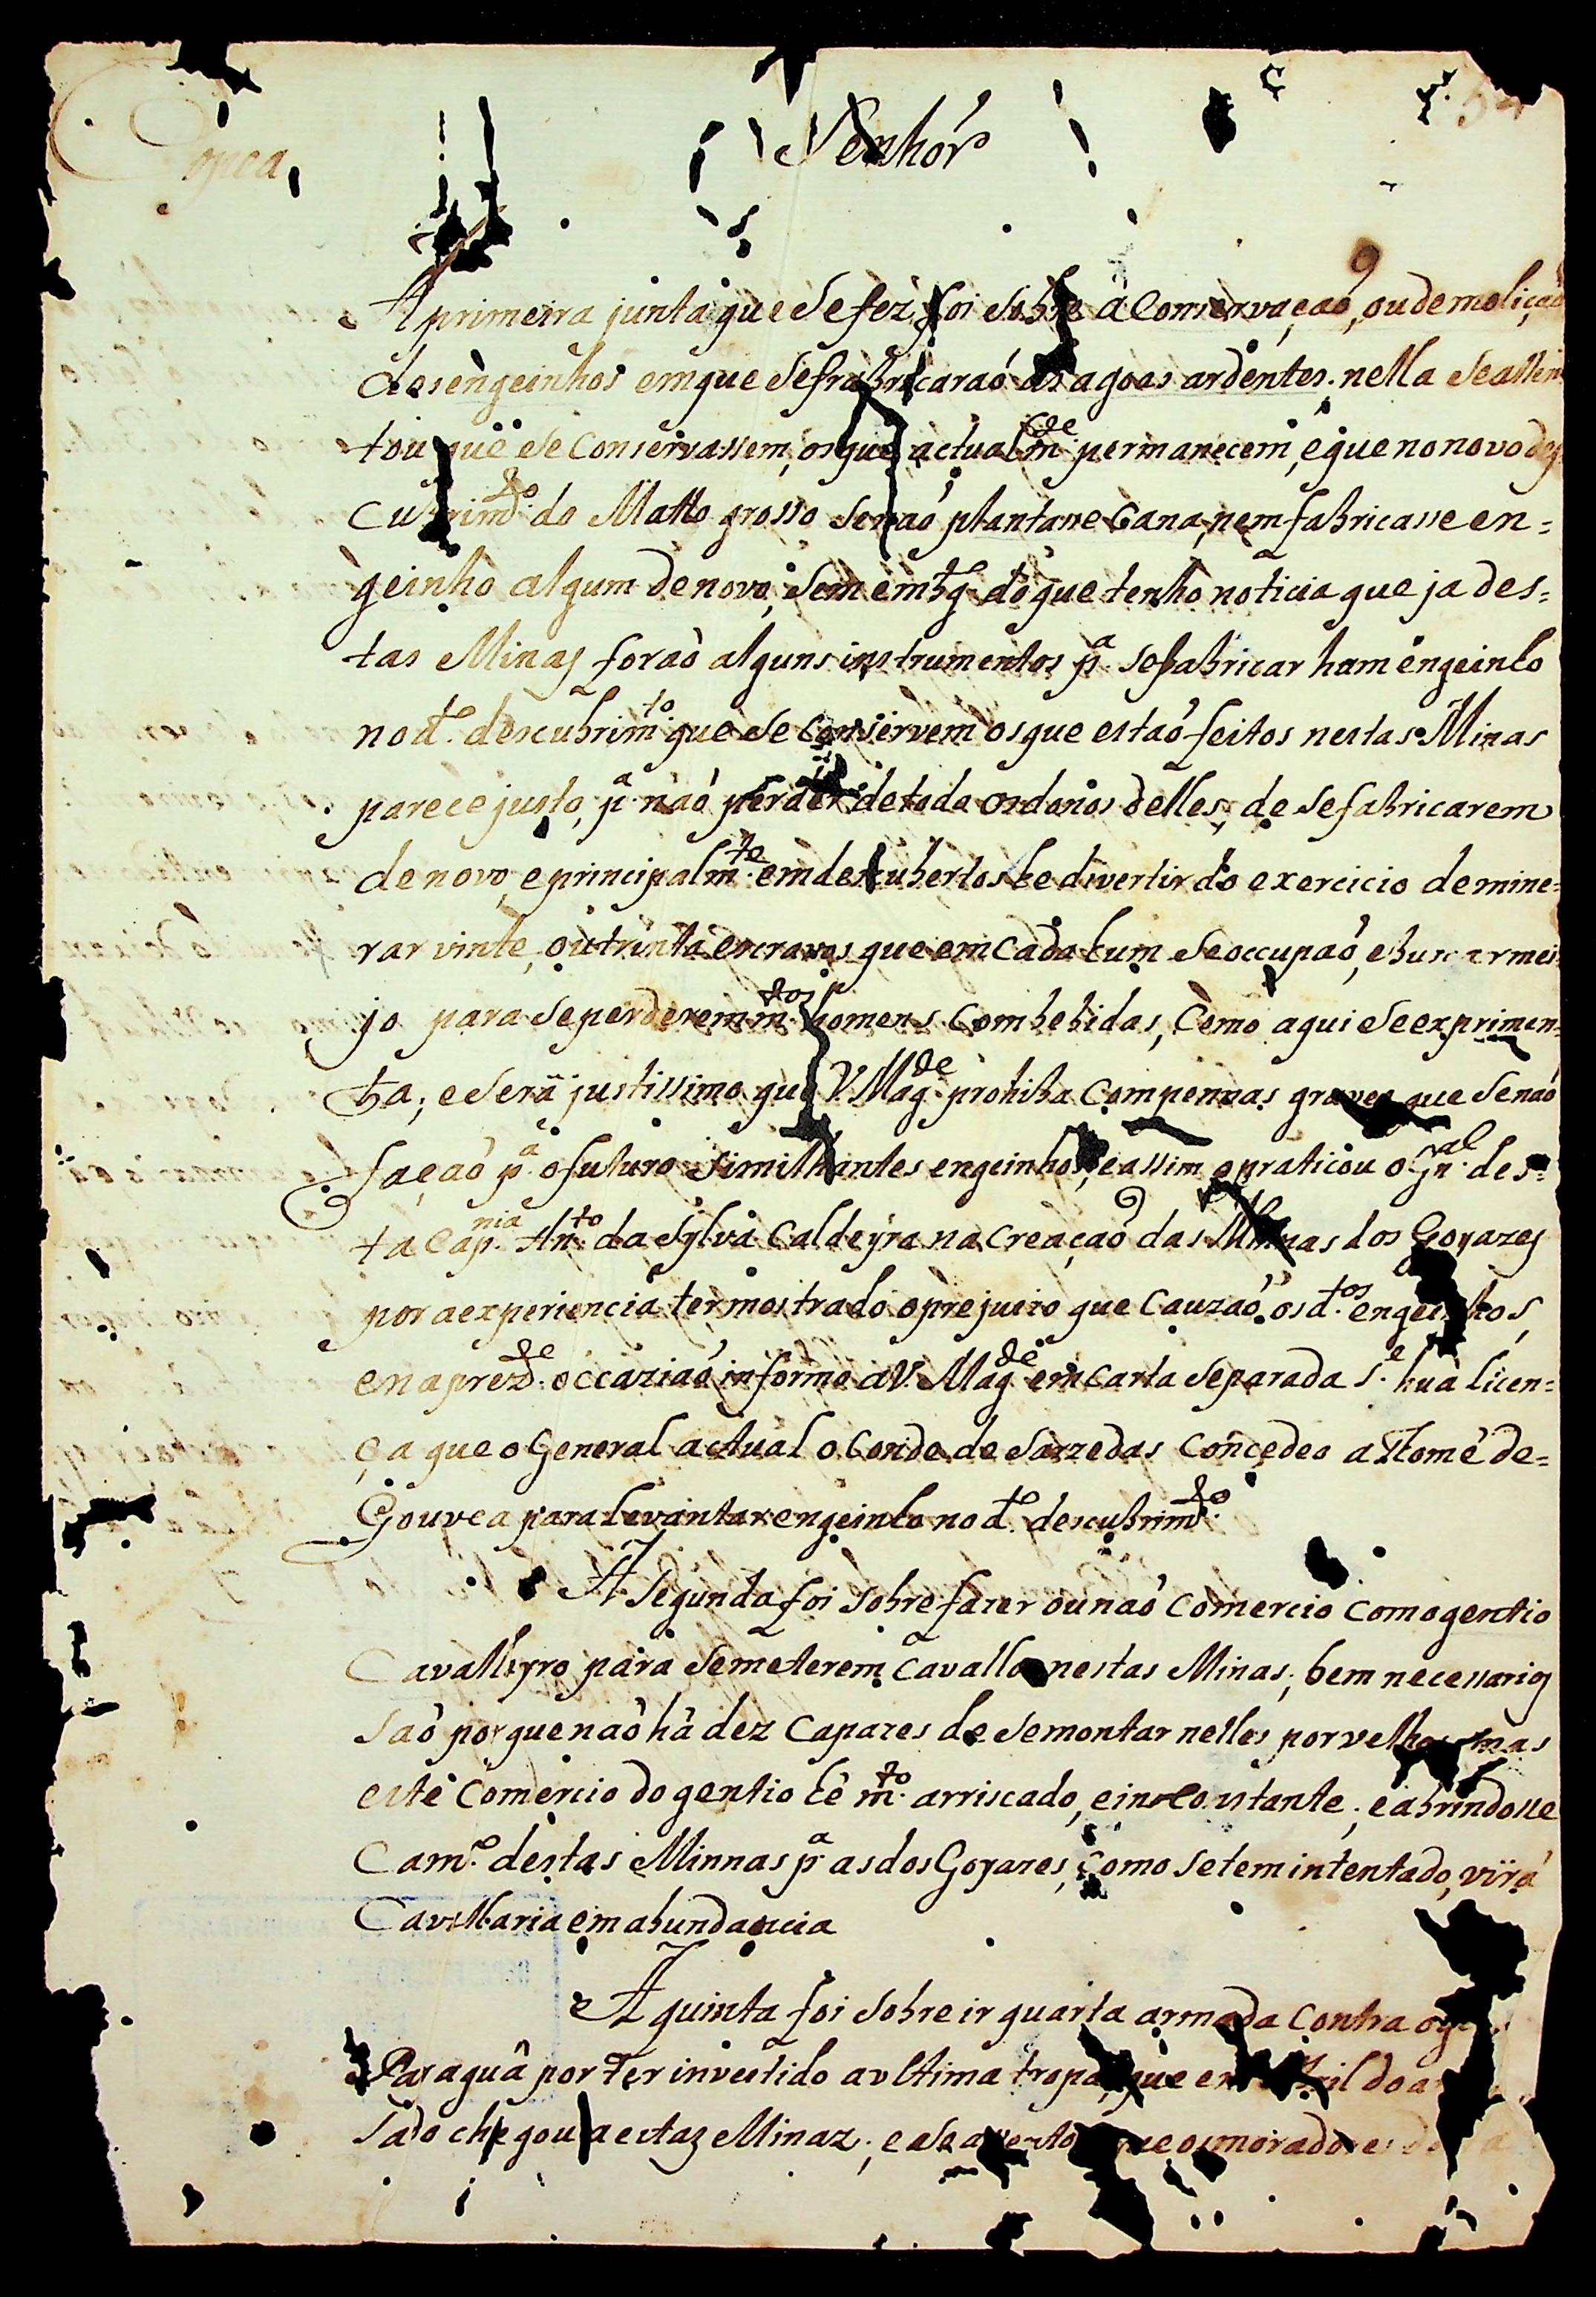 Copea
Senhór
A primeira junta que Se fez, foi Sobre a Conservaçaó, ou demoliçaó
dos engeinhos em que Sefrabricaraó as agoas ardentes. nella Seassen
tou que Se Conservassem, os que actualm.de permanecem, e que no novo des
cubrim.do do Matto grosso Senaó plantasse Cana, nem fabricasse en=
geinho algum de novo, Sem embg.o do que tenho noticia que ja des=
tas Minas foraó alguns instrumentos p.a Sefabricar hum engeinho
no d.o descubrim.to que Se conservem os que estaó feitos nestas Minas
parece justo, p.a naó perder de todo os donos delles, de Sefabricarem
de novo, e principalm.te em descubertos he divertir do exercicio de mine=
rar vinte, ou trinta escravos que em Cada hum Seoccupaó, e buscar mei
jo para Seperderem m.tos homens Com bebidas, Como aqui Se exprimen
ta; e Serâ justissimo que V. Mag.de prohiba Com pennas graves que Senaó
façaó p.a o futuro Similhantes engeinhos, e assim o praticou o Gn.al des=
ta Cap.nia An.to da Sylva Caldeyra na Creaçaó das Minas dos Goyazes
por a experiencia ter mostrado o prejuizo que Cauzaó os d.tos engeinhos,
e na prez.de occaziaó informo a V. Mag.de em Carta Separada S.e hua licen=
ça que o General actual o Conde de Sarzedas Concedeo a Thomê de=
Gouvea para levantar engeinho no d.o descubrim.do
A Segunda foi Sobre fazer ou naó Comercio Com o gentio
Cavalleyro para Se meterem Cavallos nestas Minas; bem necessarios
Saó porque naó hâ dez Capazes de Semontar nelles por velhos mas
este Comercio do gentio hê m.to arriscado, e incostante; e abrindosse
Cam.o destas Minnas p.a as dos Goyazes, Como Setem intentado, virá
Cavallaria em abundancia
A quinta foi Sobre ir quarta armada Contra o
Paraguâ por Ter investido a ultima tropa, que em Abril do
Sado chegou a estas Minaz; e Se que os moradores